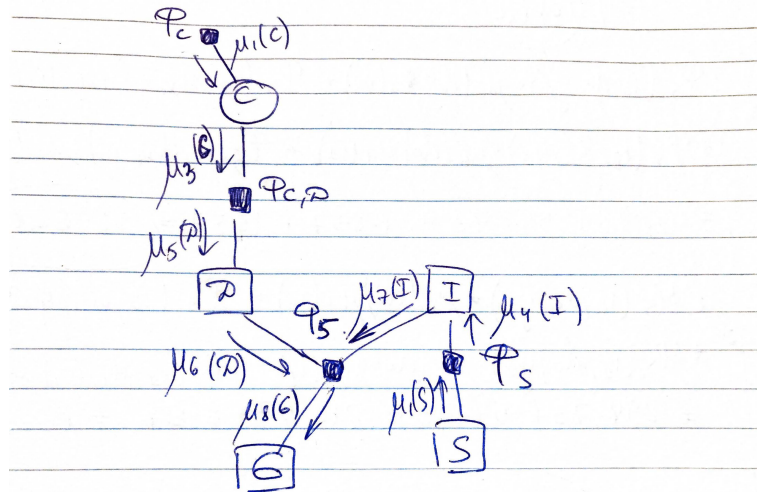 φc
μ1(C)
C
μ3(C)
φC,D
μ5(D)
D
I
μ7(I)
φ5
μ4(I)
μ6(D)
φS
μ8(G)
μ1(S)
G
S